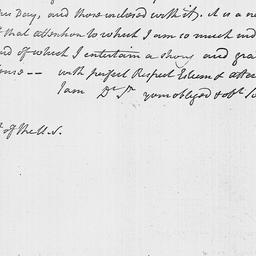 Day, and those inclosed with it. it is a
that attention to which I am so much
and of which I entertain a strong and
-- with perfect Respect Esteem &
I am Dr Sr your obliged & obt
of the U.S.